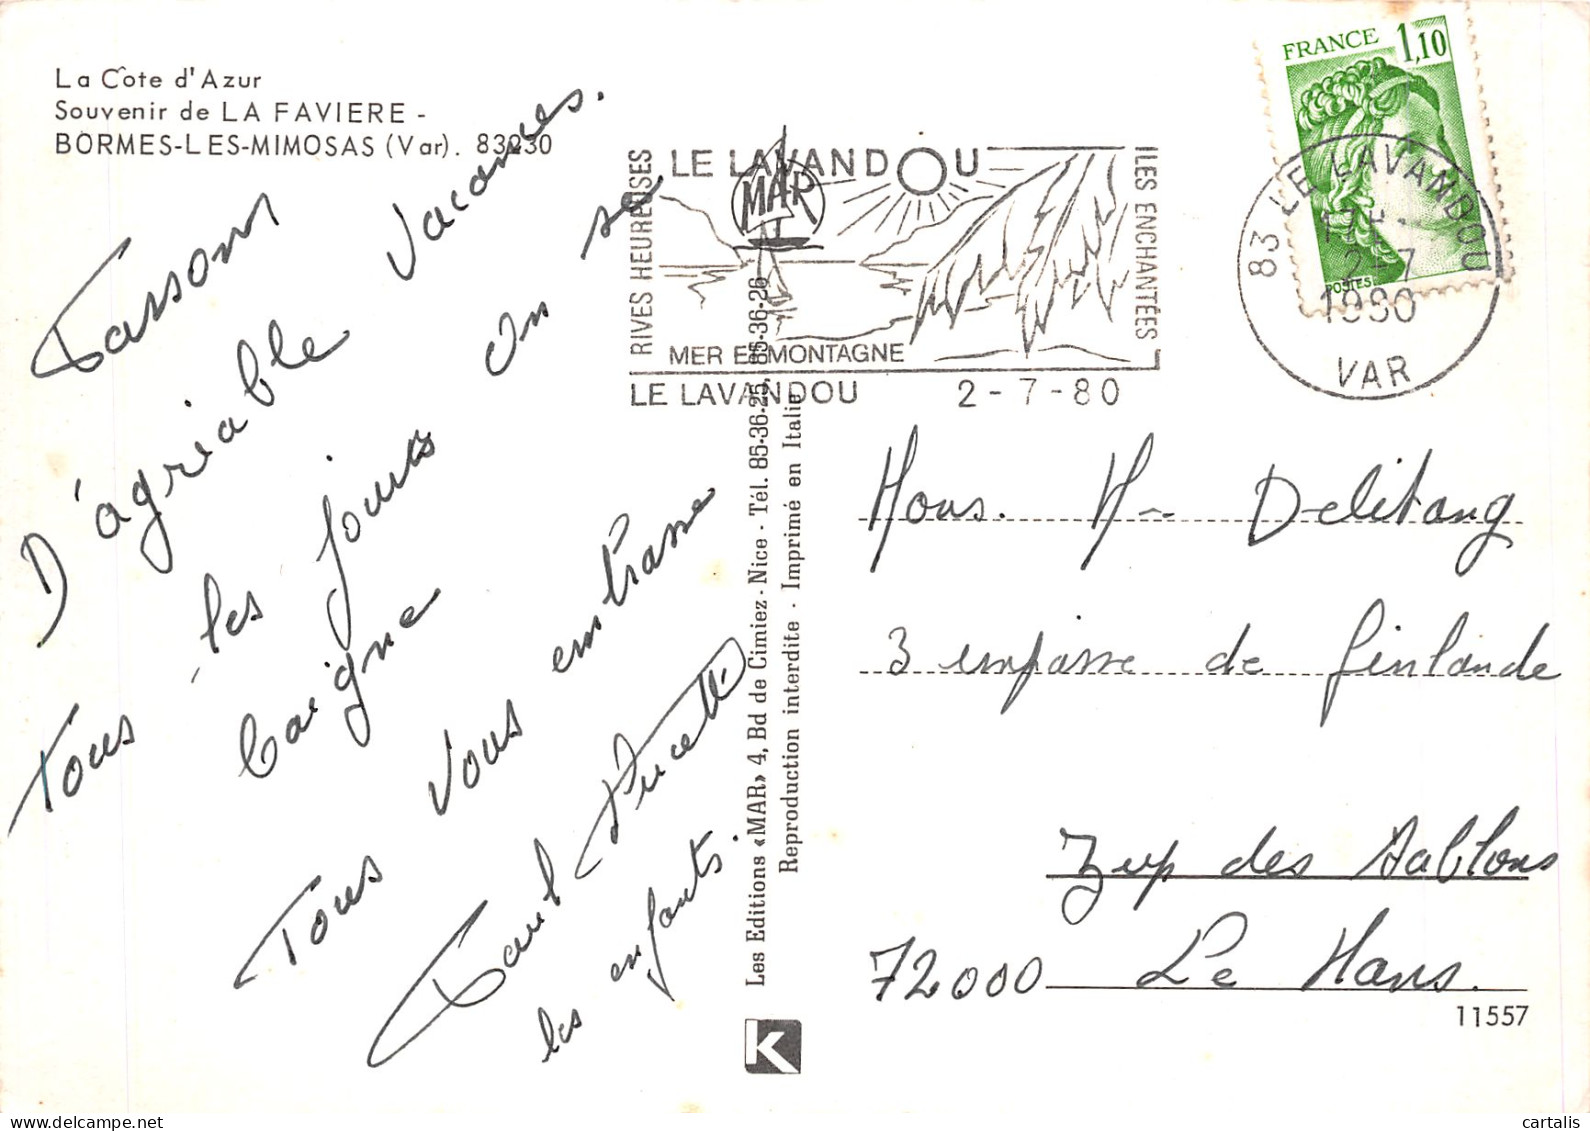 La Côte d'Azur
Souvenir de LA FAVIERE -
BORMES-LES-MIMOSAS (Var). 83230
Passons
D'agréable vacances.
Tous les jours on se
baigne
Vous embrasse
Tous
Paul
les enfants.
RIVES HEUREUSES
LE LAVANDOU
MAR
ILES ENCHANTÉES
MER ET MONTAGNE
LE LAVANDOU 2-7-80
FRANCE 1,10
POSTES
83 LE LAVANDOU
2-7
1980
VAR
Les Editions «MAR» 4, Bd de Cimiez - Nice - Tél. 85-36-25, 85-36-26
Reproduction interdite - Imprimé en Italie
K
Mons. Mme Delétang
3 impasse de Finlande
Zup des Sablons
72000 Le Mans.
11557
© cartalis